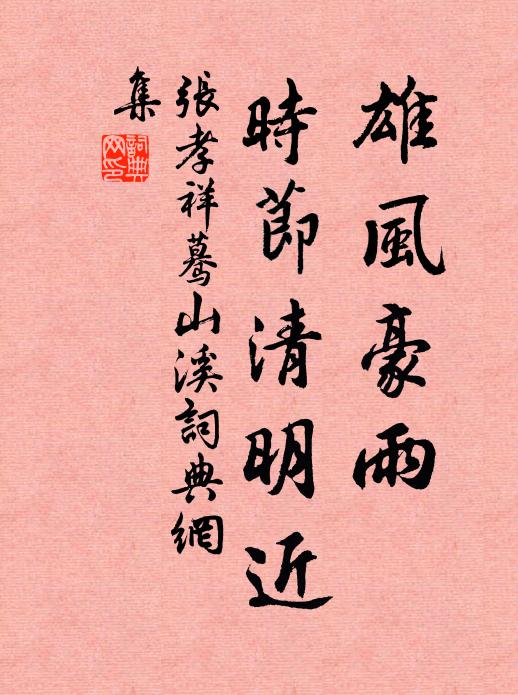 雄風豪雨
時節清明近
張孝祥驀山溪詞典網
集
詞典
网印